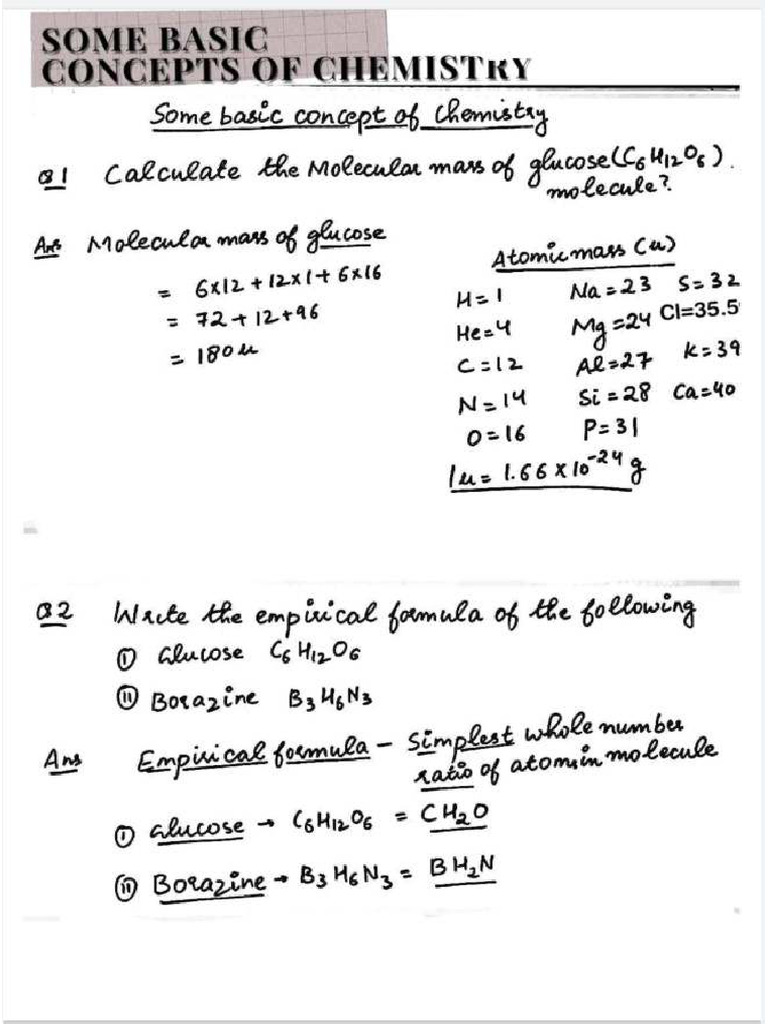 SOME BASIC
CONCEPTS OF CHEMISTRY
Some basic concept of Chemistry
Q1 Calculate the Molecular mass of glucose (C₆H₁₂O₆).
molecule?
Ans Molecular mass of glucose
= 6×12 + 12×1 + 6×16
= 72 + 12 + 96
= 180u
Atomic mass (u)
H=1 Na=23 S=32
He=4 Mg=24 Cl=35.5
C=12 Al=27 K=39
N=14 Si=28 Ca=40
O=16 P=31
1u= 1.66×10⁻²⁴g
Q2 Write the empirical formula of the following
(i) Glucose C₆H₁₂O₆
(ii) Borazine B₃H₆N₃
Ans Empirical formula – Simplest whole number
ratio of atoms in molecule
(i) Glucose → C₆H₁₂O₆ = CH₂O
(ii) Borazine → B₃H₆N₃ = BH₂N